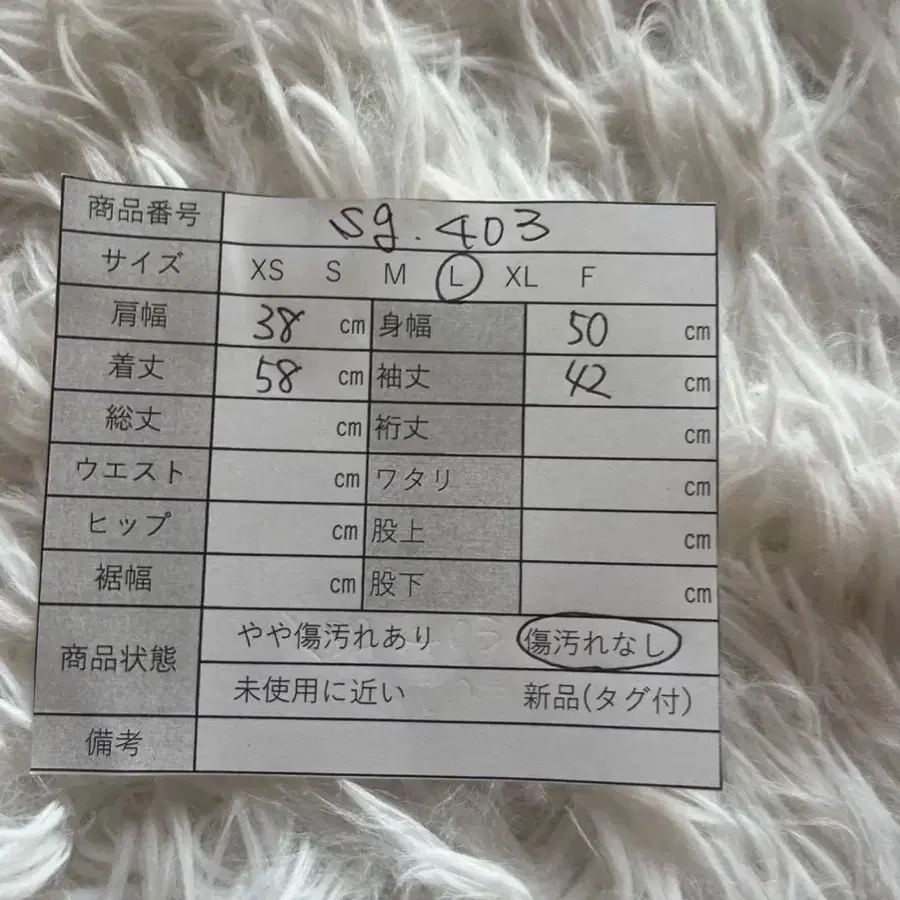 商品番号 sg.403
サイズ XS S M L XL F
肩幅 38 cm 身幅 50 cm
着丈 58 cm 袖丈 42 cm
総丈 cm 裄丈 cm
ウエスト cm ワタリ cm
ヒップ cm 股上 cm
裾幅 cm 股下 cm
商品状態 やや傷汚れあり 傷汚れなし
未使用に近い 新品(タグ付)
備考